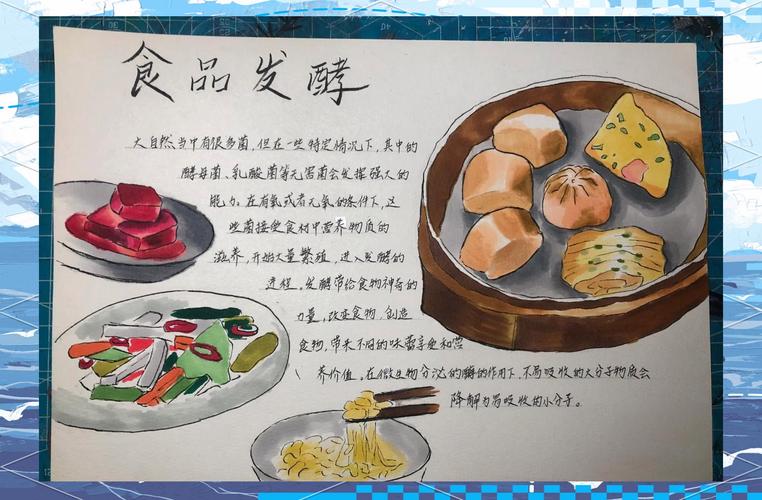 食品发酵
大自然当中有很多菌，但在一些特定情况下，其中的
酵母菌、乳酸菌等无害菌会发挥强大的
能力。在有氧或者无氧的条件下，这
些菌接受食材中营养物质的
滋养，开始大量繁殖，进入发酵的
过程。发酵带给食物神奇的
力量，改变食物，创造
食物，带来不同的味蕾享受和营
养价值。在微生物分泌的酶的作用下，不易吸收的大分子物质会
降解为易吸收的小分子。